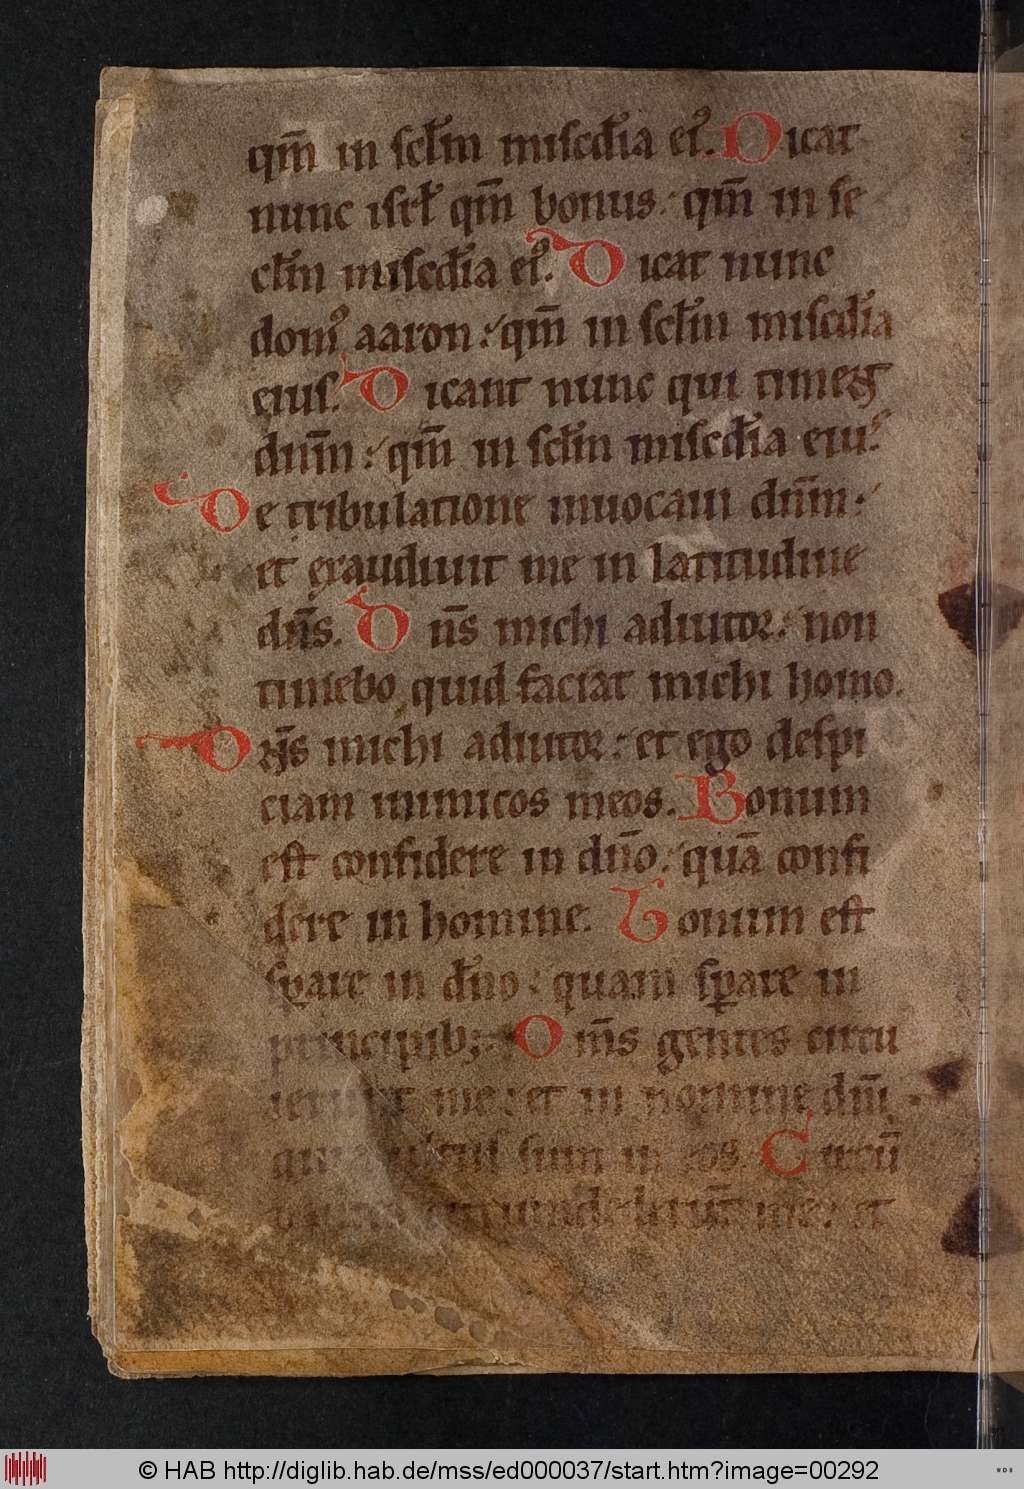 qm̄ in scl̄m misc̄dia ei᾿. Dicat
nunc isrl̄ qm̄ bonus: qm̄ in se
cl̄m misc̄dia ei᾿. Dicat nunc
dom᾿ aaron: qm̄ in scl̄m misc̄dia
eius. Dicant nunc qui timent
dnm̄: qm̄ in scl̄m misc̄dia eiu᾿
De tribulatione inuocaui dnm̄:
et exaudiuit me in latitudine
dn̄s. Dn̄s michi adiutor: non
timebo quid faciat michi homo.
Dn̄s michi adiutor: et ego despi
ciam inimicos meos. Bonum
est confidere in dn̄o: quā confi
dere in homine. Bonum est
sꝑare in dn̄o: quam sꝑare in
principib;: Om̄s gentes circu
ierunt me: et in nomine dnī
sum in eos. Circū
circumdederunt me: et
© HAB http://diglib.hab.de/mss/ed000037/start.htm?image=00292